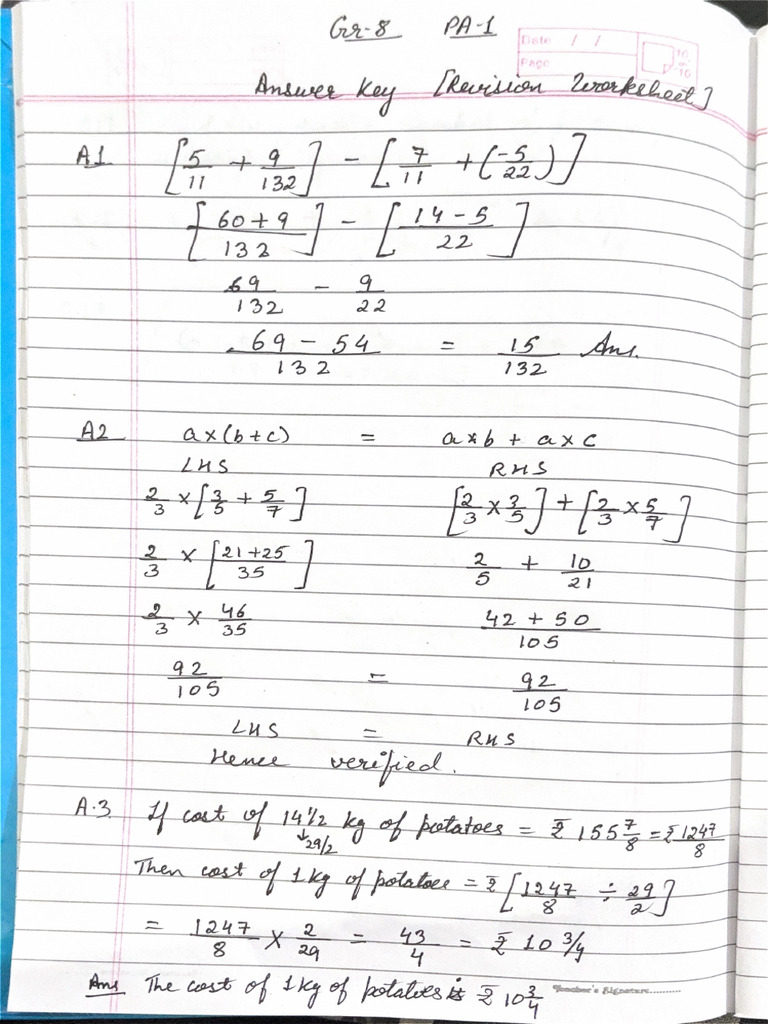 Gr-8 PA-1
Date / /
Page
Answer Key [Revision Worksheet]
A1 [5/11 + 9/132] - [7/11 + (-5/22)]
[60+9/132] - [14-5/22]
69/132 - 9/22
69-54/132 = 15/132 Ans.
A2 a×(b+c) = a×b + a×c
LHS RHS
2/3 × [3/5 + 5/7] [2/3 × 3/5] + [2/3 × 5/7]
2/3 × [21+25/35] 2/5 + 10/21
2/3 × 46/35 42+50/105
92/105 = 92/105
LHS = RHS
Hence verified.
A.3 If cost of 14 1/2 kg of potatoes = ₹ 155 7/8 = ₹ 1247/8
↓ 29/2
Then cost of 1 kg of potatoe = ₹ [1247/8 ÷ 29/2]
= 1247/8 × 2/29 = 43/4 = ₹ 10 3/4
Ans The cost of 1 kg of potatoes is ₹ 10 3/4
Teacher's Signature..........